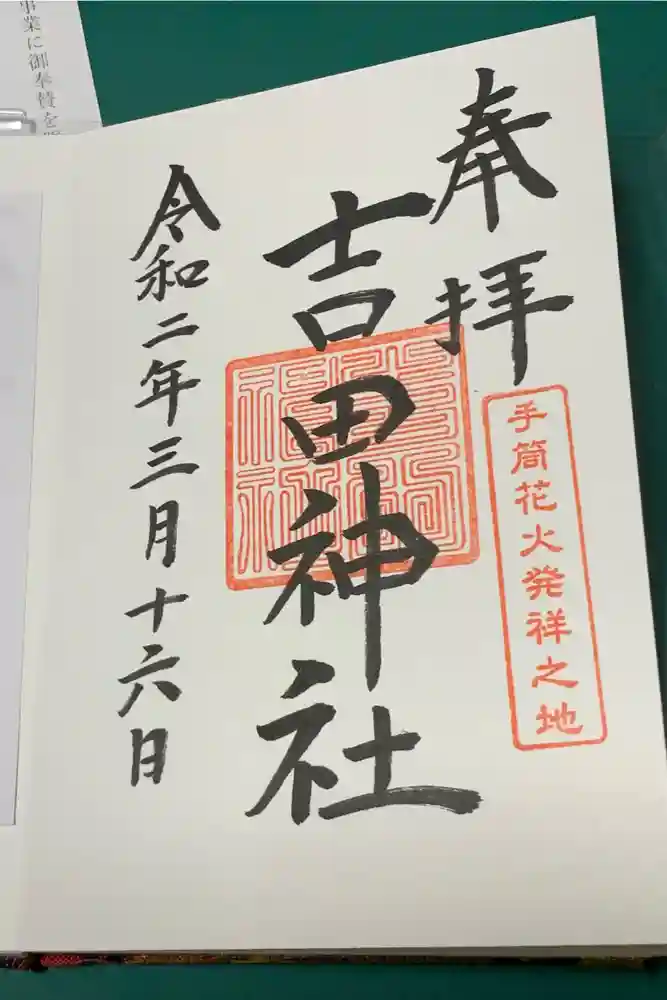 奉拝
手筒花火発祥之地
吉田神社
令和二年三月十六日
事業に御奉賛を